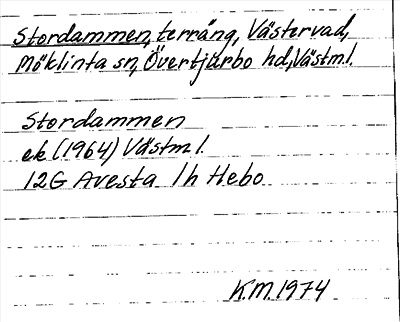 Stordammen, terräng, Västervad,
Möklinta sn, Övertjurbo hd, Västml.
Stordammen
ek (1964) Västml.
12G Avesta 1h Hebo
K.M. 1974